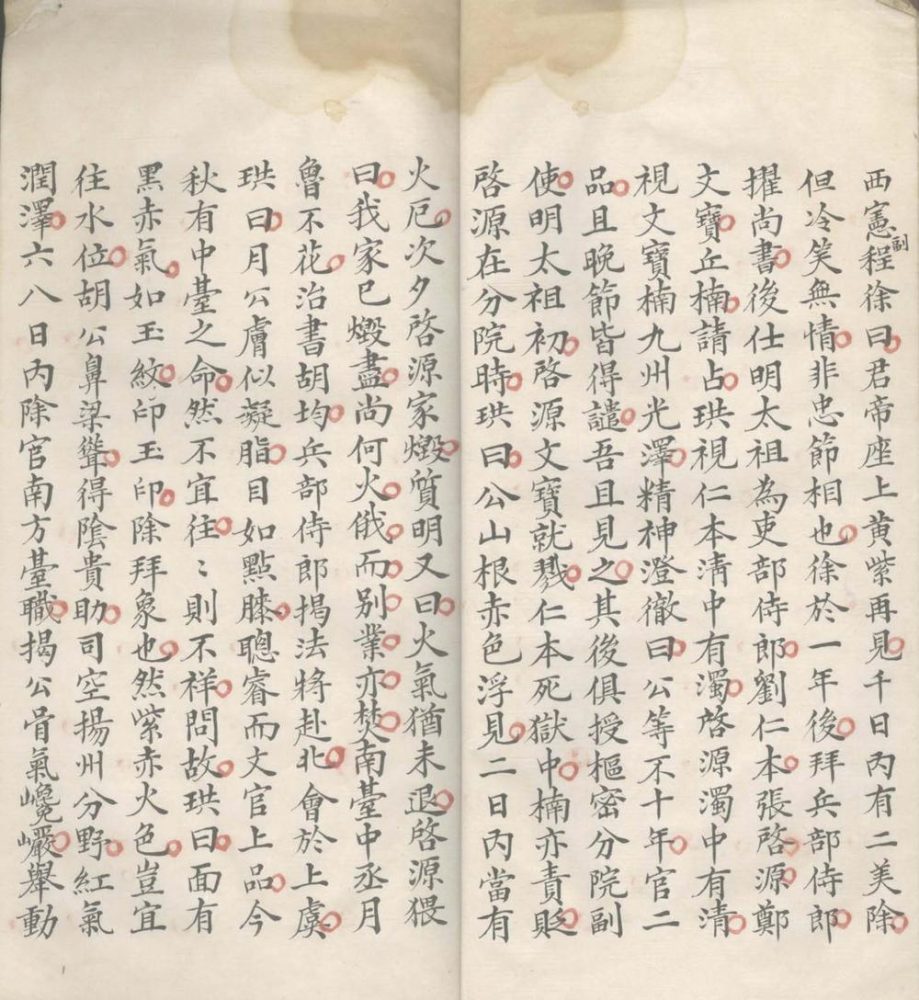 西憲副程徐曰君帝座上黄紫再見千日內有二美除
但冷笑無情非忠節相也徐於一年後拜兵部侍郎
擢尚書後仕明太祖為吏部侍郎劉仁本張啓源鄭
文寶丘楠請占珙視仁本清中有濁啓源濁中有清
視文寶楠九州光澤精神澄徹曰公等不十年官二
品且晚節皆得譴吾且見之其後俱授樞密分院副
使明太祖初啓源文寶就戮仁本死獄中楠亦責貶
啓源在分院時珙曰公山根赤色浮見二日內當有
火厄次夕啓源家燬質明又曰火氣猶未退啓源猥
曰我家已燬盡尚何火俄而別業亦焚南臺中丞月
魯不花治書胡均兵部侍郎揭法將赴北會於上虞
珙曰月公膚似凝脂目如點膝聰睿而文官上品今
秋有中臺之命然不宜往〻則不祥問故珙曰面有
黑赤氣如玉紋印玉印除拜象也然紫赤火色豈宜
往水位胡公鼻梁聳得陰貴助司空揚州分野紅氣
潤澤六八日內除官南方臺職揭公骨氣巉巖舉動